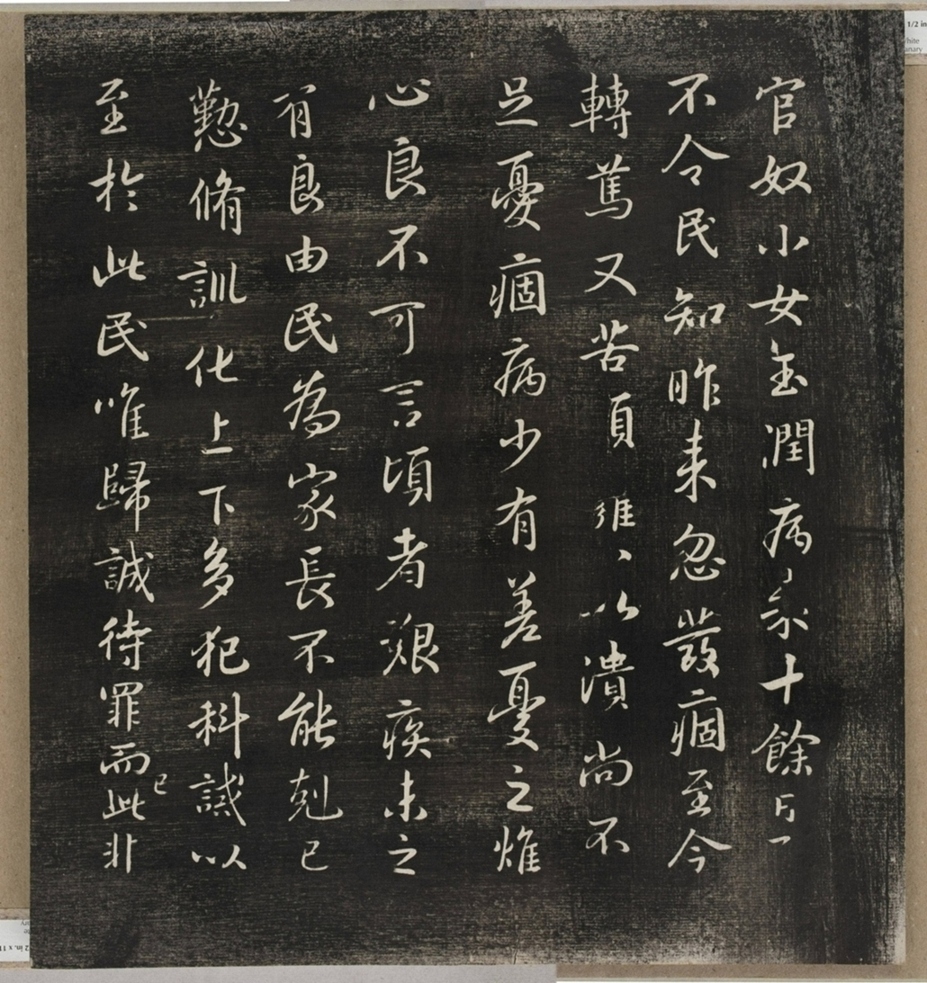 官奴小女玉潤病來十餘日一
不令民知昨來忽發痼至今
轉篤又苦頭癰、以潰尚不
足憂痼病少有差憂之燋
心良不可言頃者艱疾未之
有良由民為家長不能剋己
懃脩訓化上下多犯科誡以
至於此民唯歸誠待罪而此非
已
1/2 in